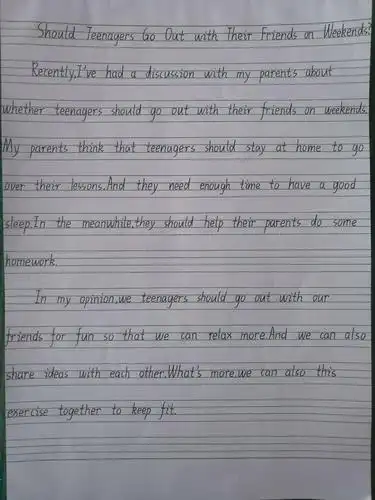 Should Teenagers Go Out with Their Friends on Weekends?
Recently,I've had a discussion with my parents about
whether teenagers should go out with their friends on weekends.
My parents think that teenagers should stay at home to go
over their lessons.And they need enough time to have a good
sleep.In the meanwhile,they should help their parents do some
homework.
In my opinion,we teenagers should go out with our
friends for fun so that we can relax more.And we can also
share ideas with each other.What's more,we can also this
exercise together to keep fit.